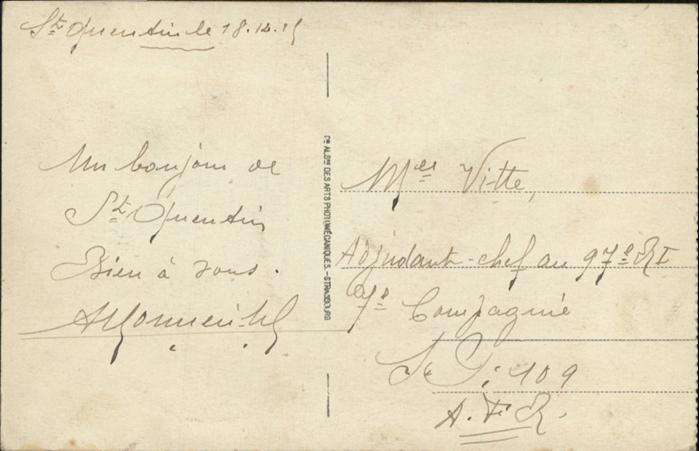 St Quentin le 18.12.19
Un bonjour de
St Quentin
Bien à vous.
Cie ALSNE DES ARTS PHOTOMÉCANIQUES. - STRASBOURG
Vitte,
Adjudant-chef au 97e RI
7e Compagnie
S. P. 109
A. F. R.